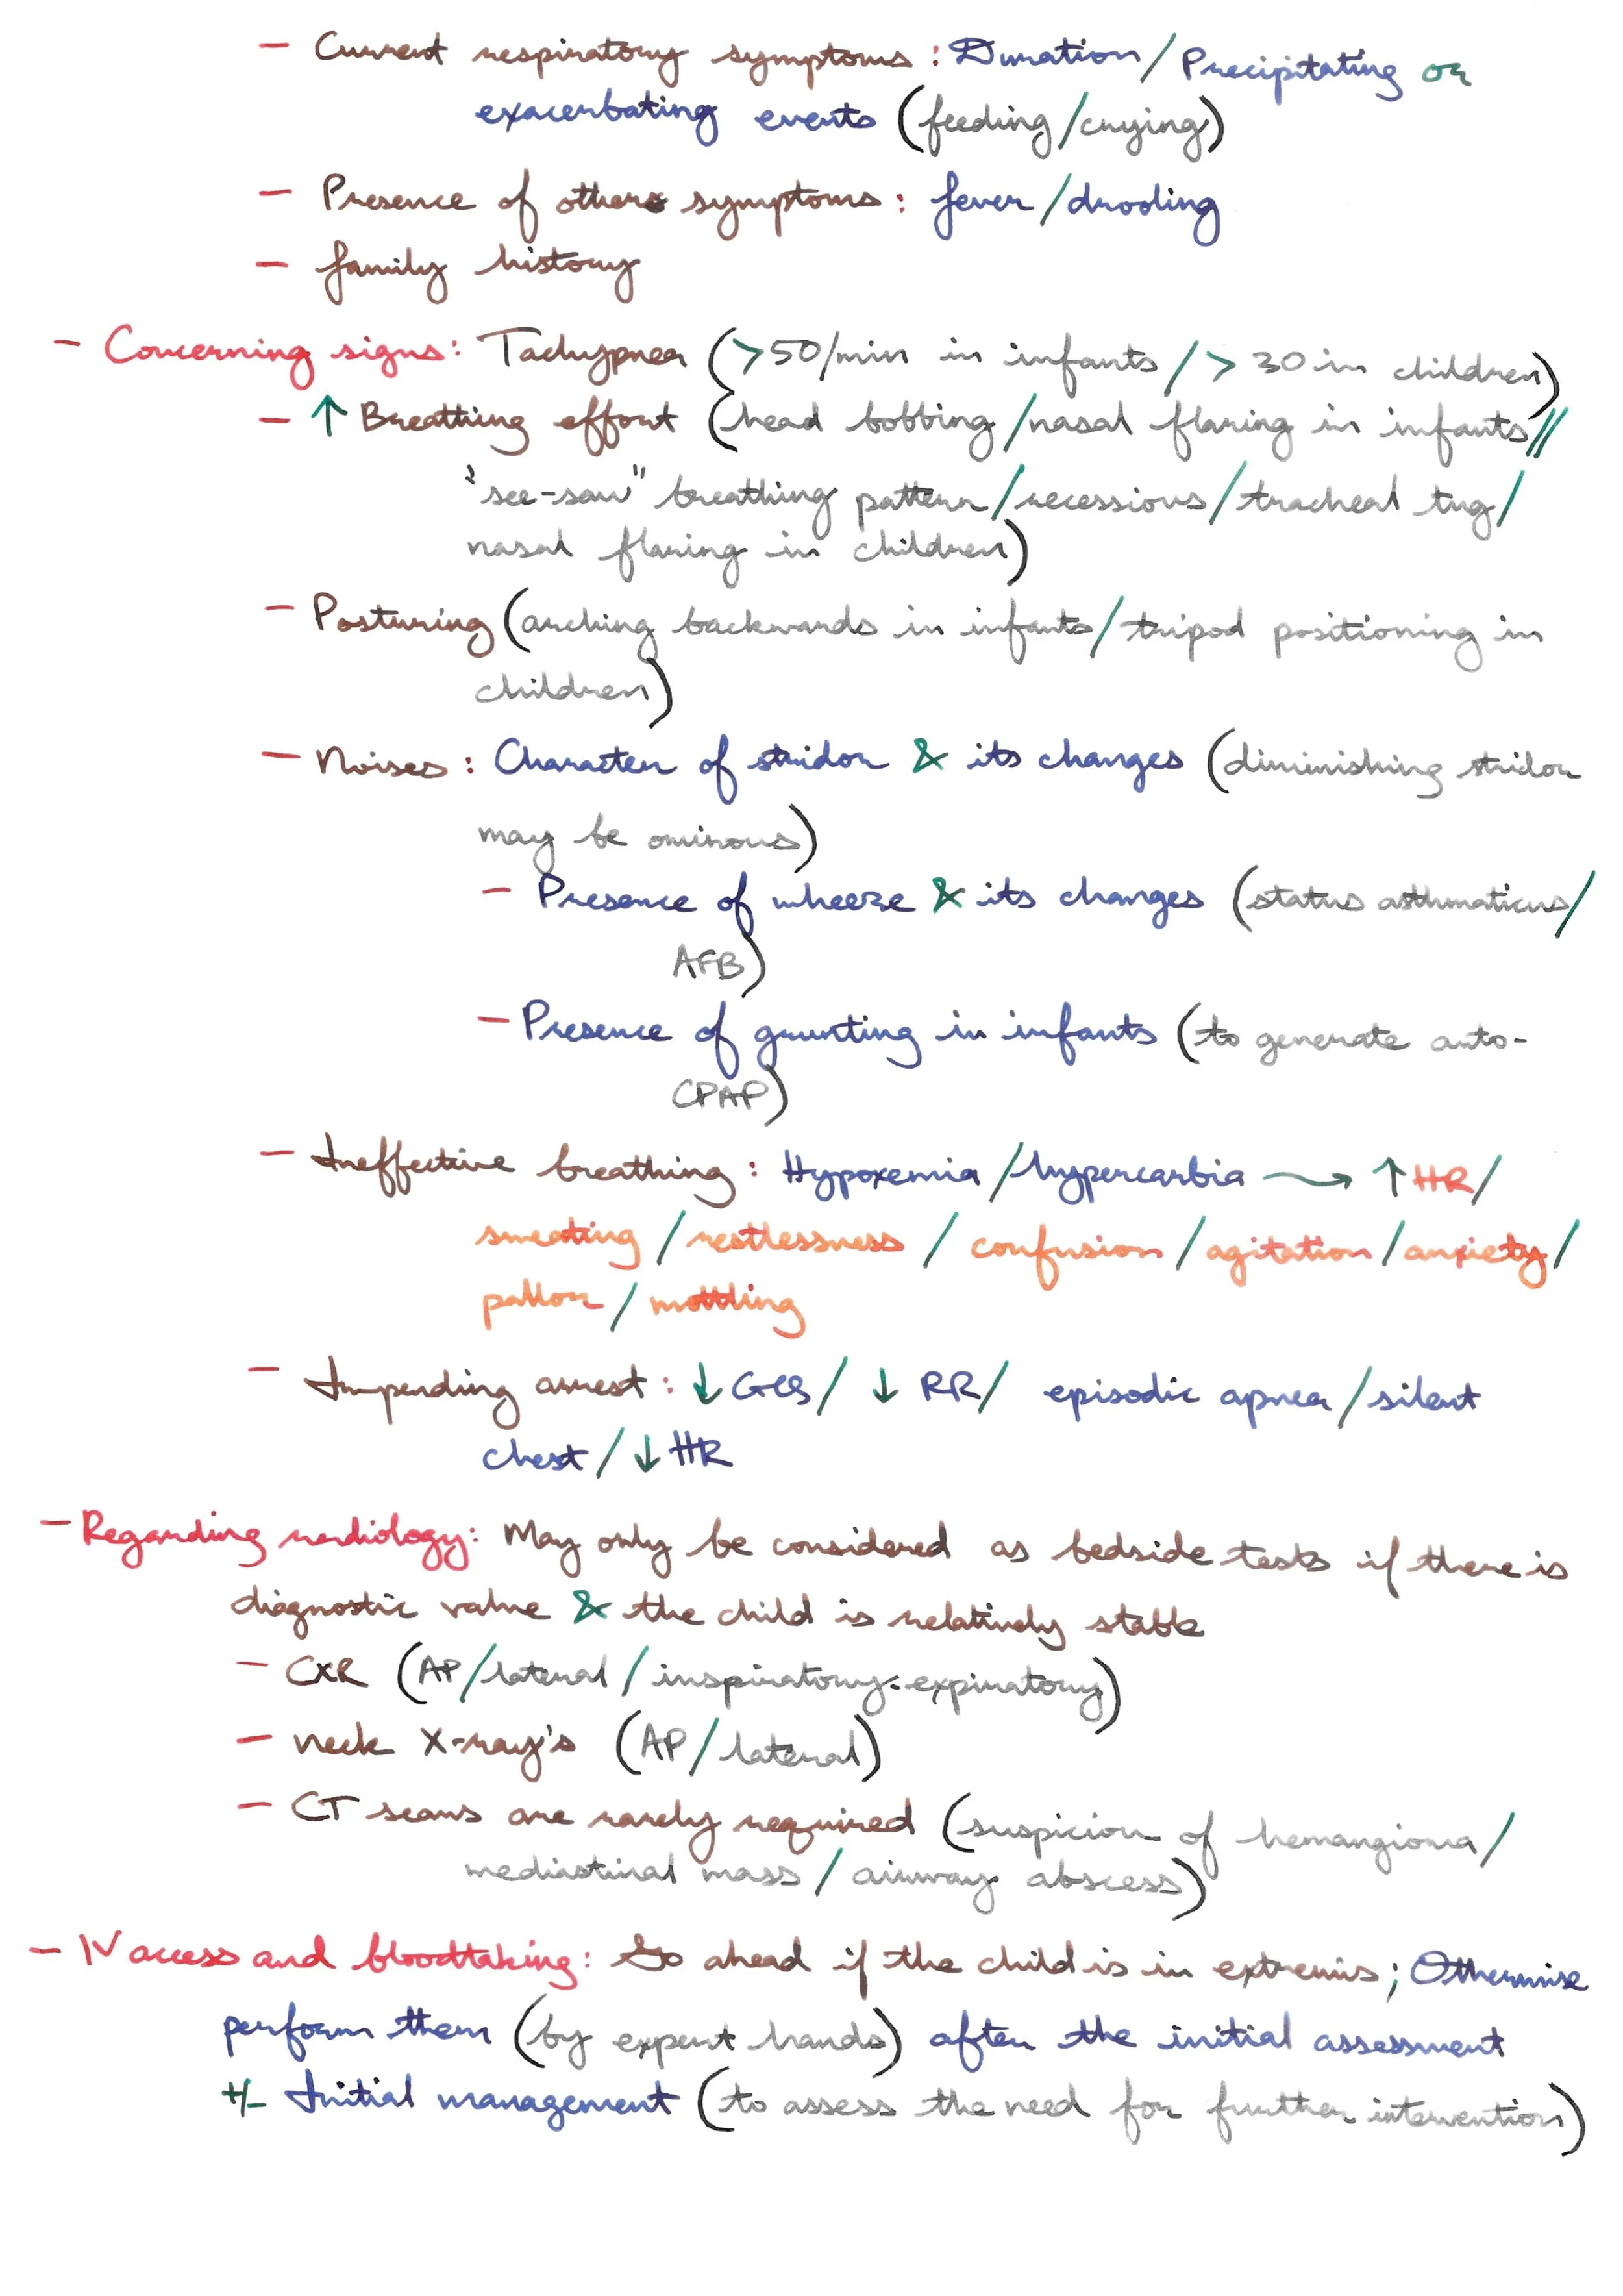 - Current respiratory symptoms : Duration / Precipitating or
exacerbating events (feeding/crying)
- Presence of others symptoms : fever/drooling
- family history
- Concerning signs: Tachypnea (>50/min in infants / > 30 in children)
- ↑ Breathing effort (head bobbing/nasal flaring in infants//
"see-saw" breathing pattern/recessions/tracheal tug/
nasal flaring in children)
- Posturing (arching backwards in infants/tripod positioning in
children)
- Noises : Character of stridor & its changes (diminishing stridor
may be ominous)
- Presence of wheeze & its changes (status asthmaticus/
AFB)
- Presence of grunting in infants (to generate auto-
CPAP)
- Ineffective breathing : Hypoxemia/hypercarbia → ↑ HR/
sweating / restlessness / confusion / agitation / anxiety /
pallor / mottling
- Impending arrest : ↓ GCS / ↓ RR / episodic apnea / silent
chest / ↓ HR
- Regarding radiology: May only be considered as bedside tests if there is
diagnostic value & the child is relatively stable
- CXR (AP/lateral / inspiratory-expiratory)
- neck X-ray's (AP/lateral)
- CT scans are rarely required (suspicion of hemangioma/
mediastinal mass / airway abscess)
- IV access and bloodtaking: Go ahead if the child is in extremis ; Otherwise
perform them (by expert hands) after the initial assessment
+/- Initial management (to assess the need for further intervention)